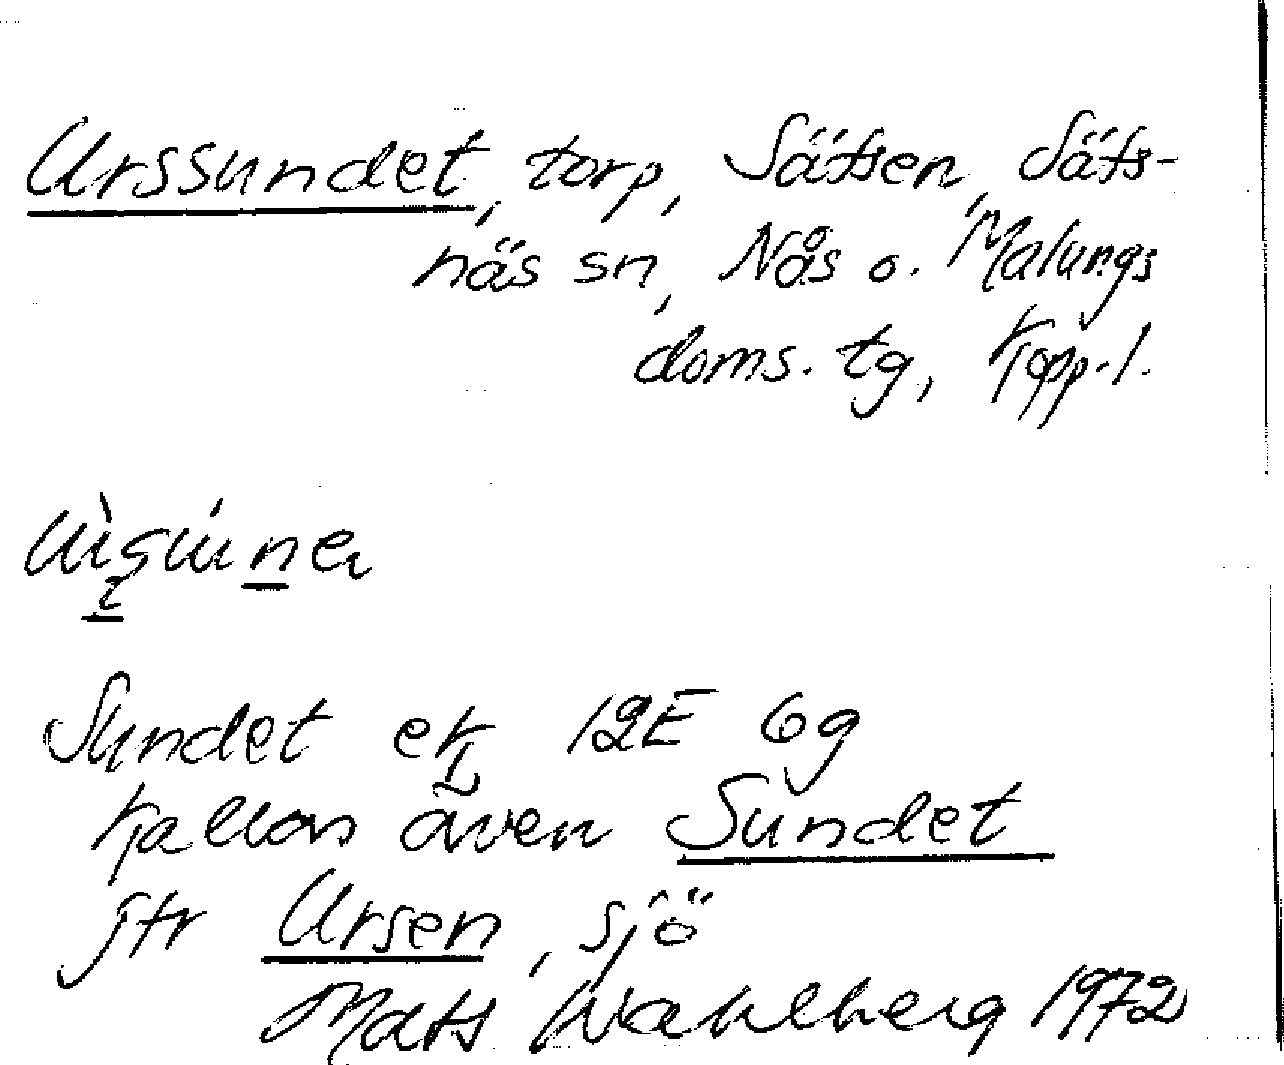 Urssundet, torp, Sätsen, Säfs-
näs sn, Nås o. Malungs
doms. tg, Kopp. l.
Sundet ek 12E 6g
kallas även Sundet
jfr Ursen, sjö
Mats Wahlberg 1972